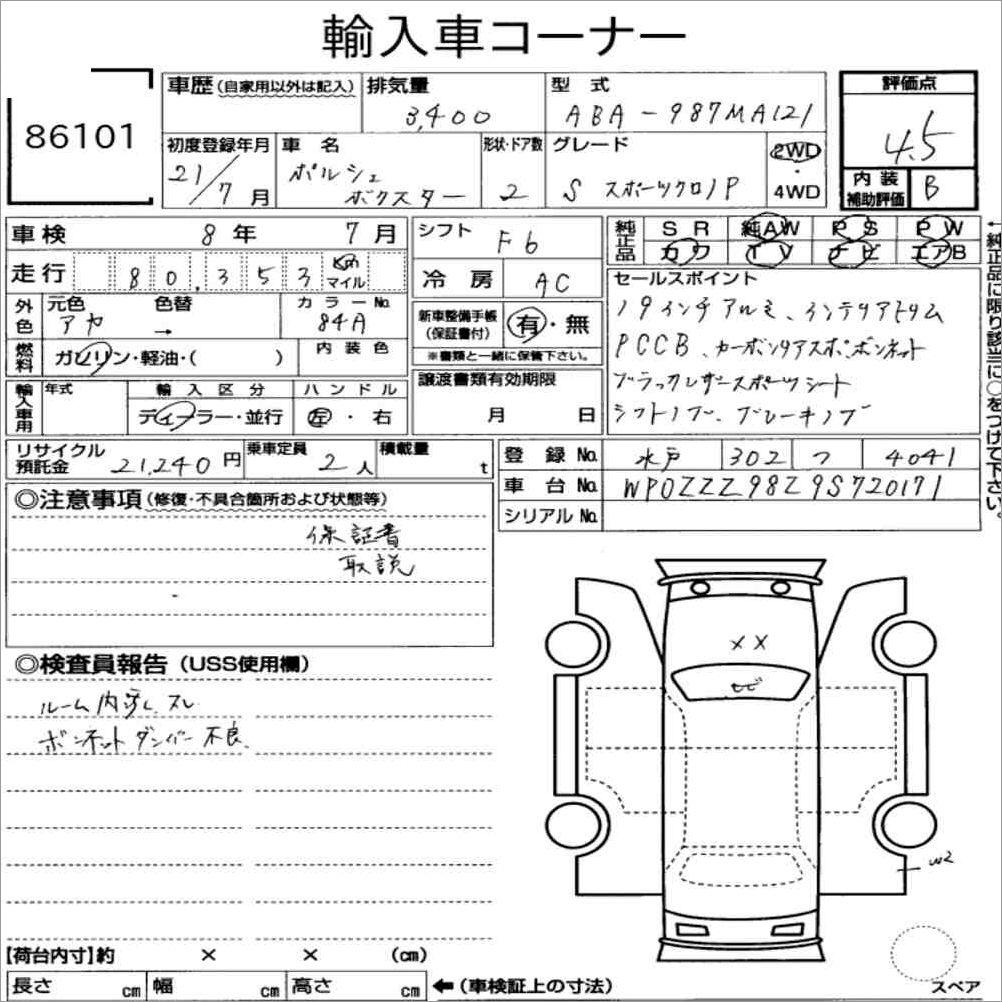 輸入車コーナー
86101
車歴(自家用以外は記入) 排気量 型式 評価点
3,400 ABA-987MA121 4.5
初度登録年月 車名 形状・ドア数 グレード 2WD・4WD
21/7月 ポルシェ ボクスター 2 S スポーツクロノP
内装補助評価 B
車検 8年 7月
シフト F6
純正品 SR 純AW PS PW
カワ TV ナビ エアB
走行 80,353 Km マイル
冷房 AC
セールスポイント
19インチアルミ、インテリアトリム
PCCB、カーボンリアスポ、ボンネット
ブラックレザースポーツシート
シフトノブ、ブレーキノブ
外色 元色 色替 カラーNo.
アヤ → 84A
新車整備手帳(保証書付) 有・無
※書類と一緒に保管下さい。
燃料 ガソリン・軽油・( ) 内装色
譲渡書類有効期限
月 日
輸入車用 年式 輸入区分 ハンドル
ディーラー・並行 左・右
←純正品に限り該当に○をつけて下さい。
リサイクル預託金 21,240円 乗車定員 2人 積載量 t
登録No. 水戸 302 つ 4041
車台No. WP0ZZZ98Z9S720171
シリアルNo.
◎注意事項(修復・不具合箇所および状態等)
保証書
取説
◎検査員報告(USS使用欄)
ルーム内穴し、スレ
ボンネットダンパー不良
××
トビ
W2
【荷台内寸】約 × × (cm)
長さ cm 幅 cm 高さ cm ←(車検証上の寸法)
スペア